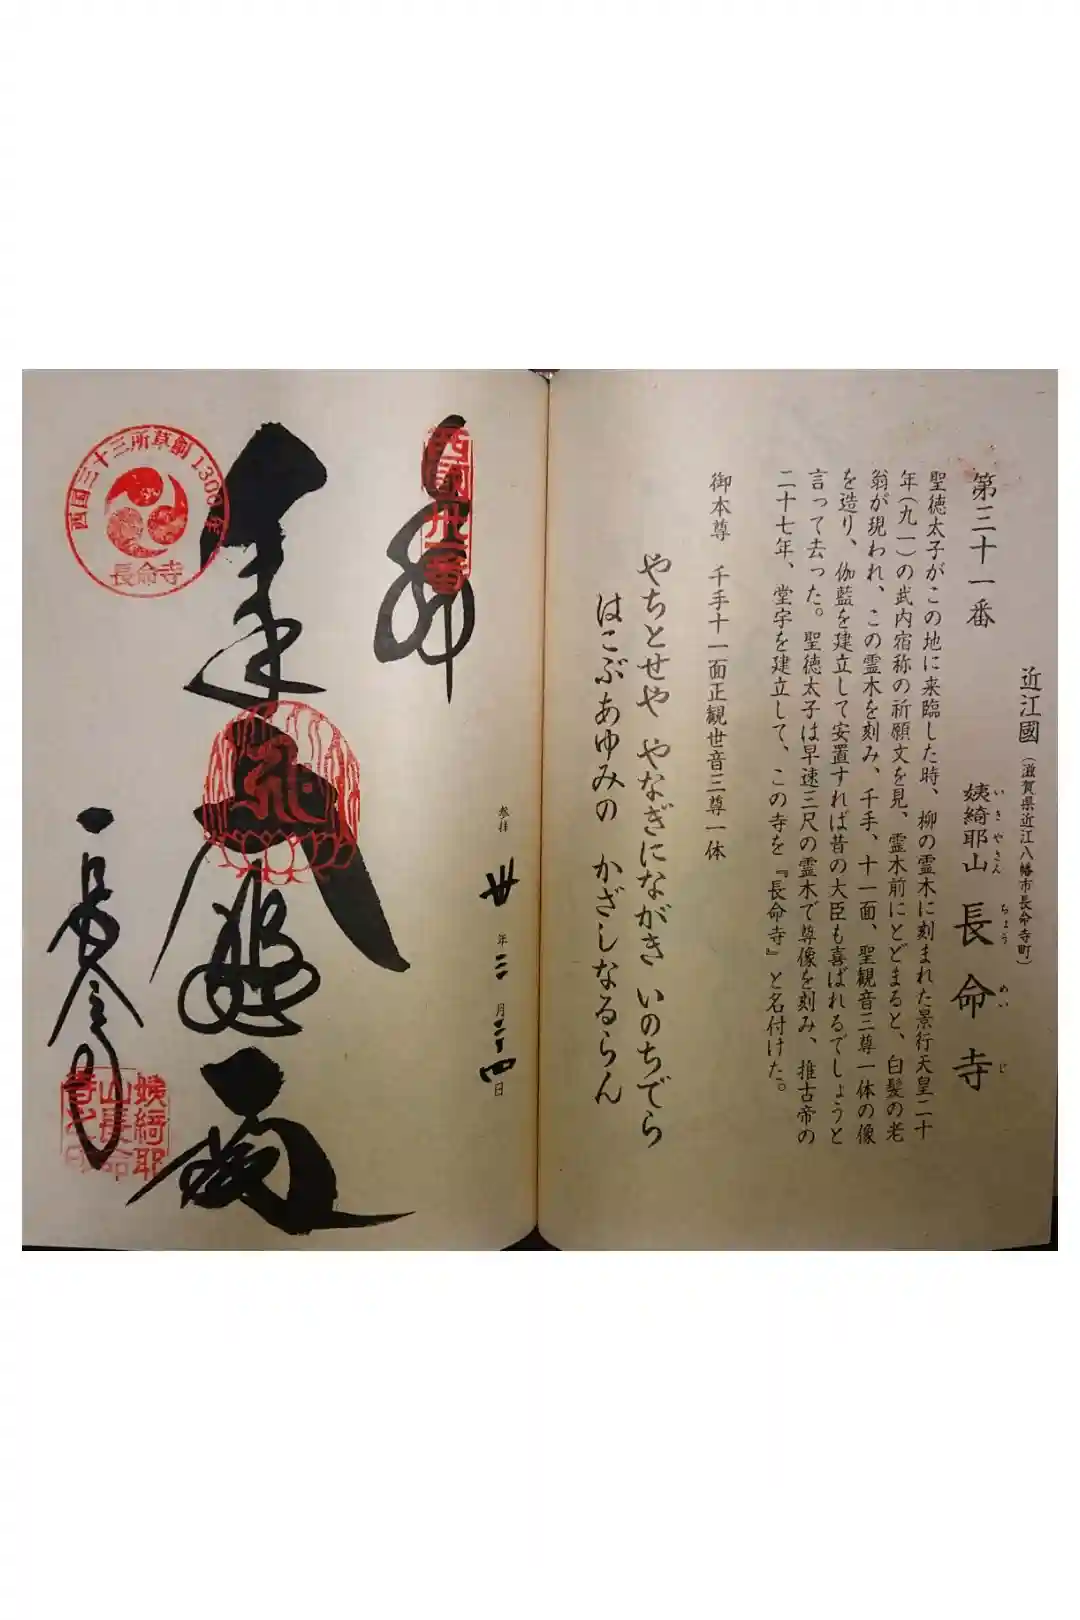 近江國(滋賀県近江八幡市長命寺町)
第三十一番 姨綺耶山 長命寺
いきやさん ちょうめいじ
聖徳太子がこの地に来臨した時、柳の霊木に刻まれた景行天皇二十
年(九一)の武内宿称の祈願文を見、霊木前にとどまると、白髪の老
翁が現われ、この霊木を刻み、千手、十一面、聖観音三尊一体の像
を造り、伽藍を建立して安置すれば昔の大臣も喜ばれるでしょうと
言って去った。聖徳太子は早速三尺の霊木で尊像を刻み、推古帝の
二十七年、堂宇を建立して、この寺を『長命寺』と名付けた。
御本尊 千手十一面正観世音三尊一体
やちとせや やなぎにながき いのちでら
はこぶあゆみの かざしなるらん
西國卅一番
参拝 年 三月二十四日
西国三十三所草創1300年
長命寺
長命寺
姨綺耶
山長命
寺之印